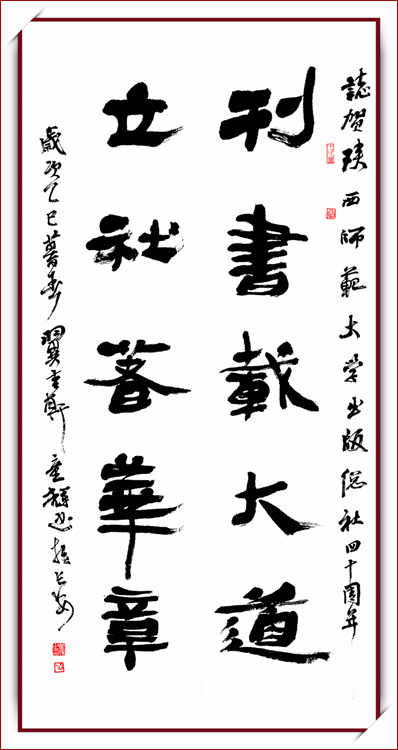 誌賀陕西師範大学出版總社四十周年
刊書載大道
立社著華章
歲次乙巳暮